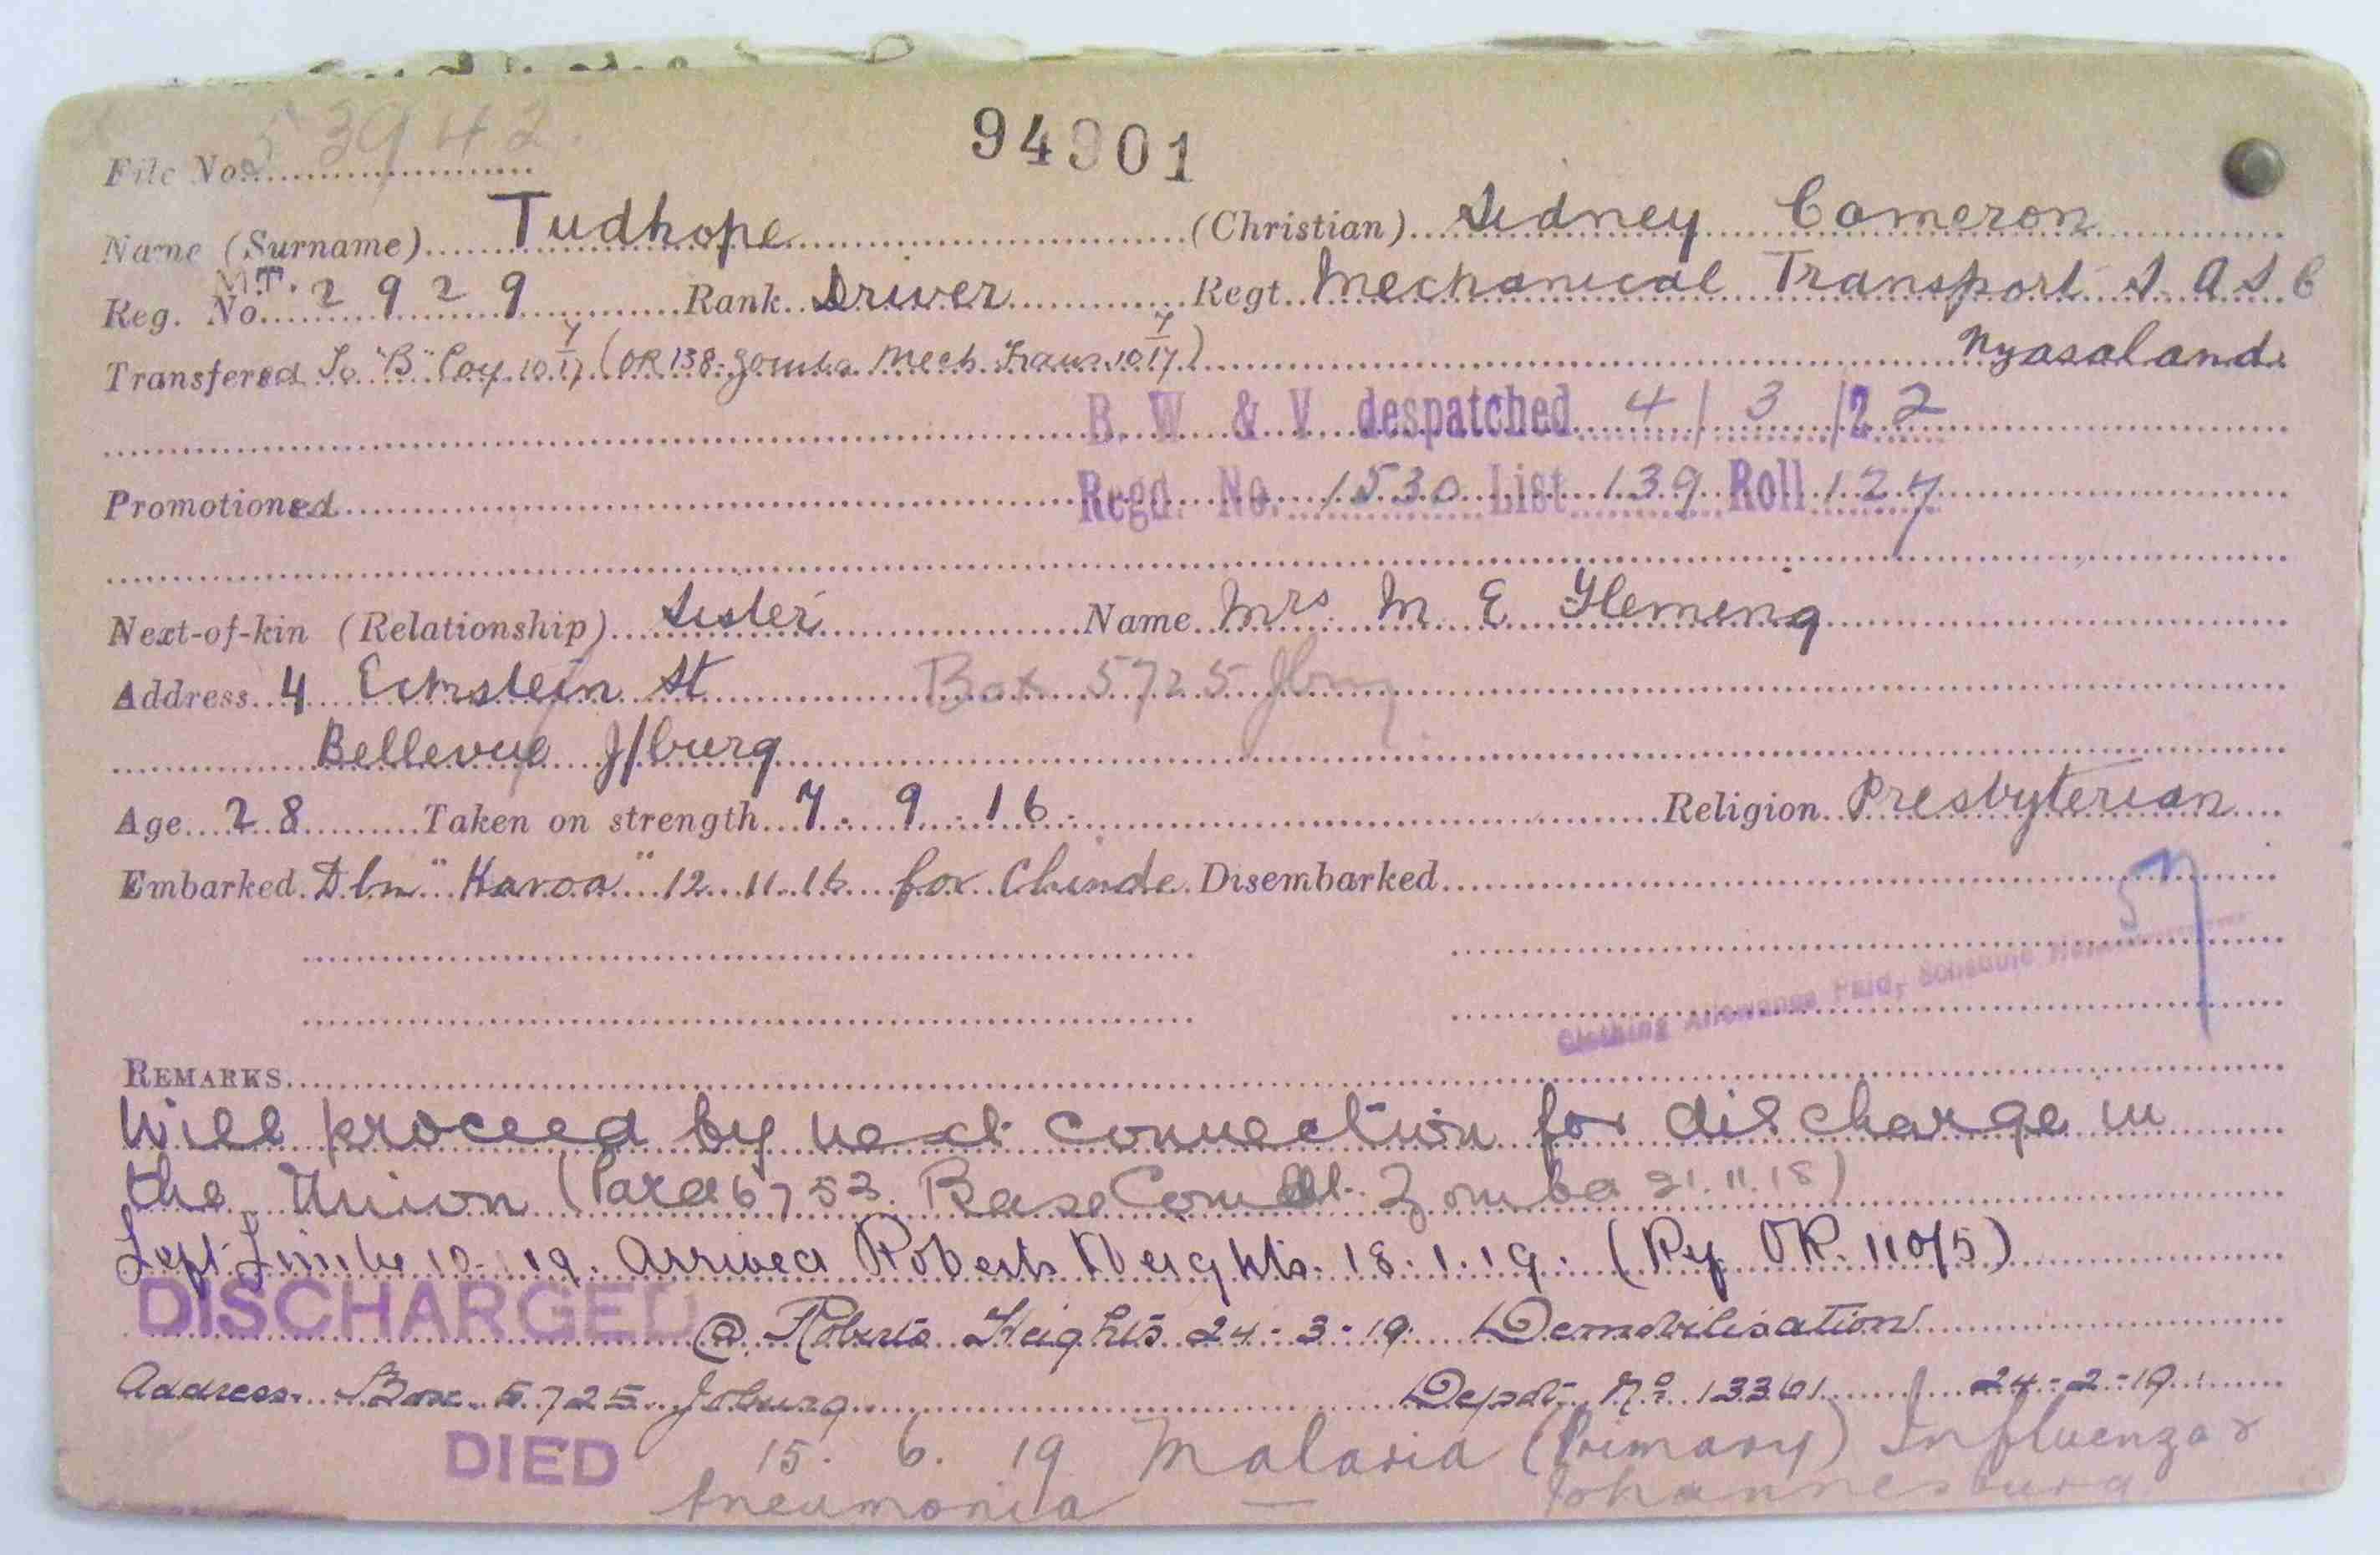 94901
File No. 53942.
Name (Surname) Tudhope (Christian) Sidney Cameron
Reg. No. M.T. 2929 Rank Driver Regt. Mechanical Transport S A S C
Transfered To "B" Coy 10/7/17 (OR 138. Zomba Mech. Trans. 10/7/17) Nyasaland
B. W. & V. despatched 4/3/22
Promotioned Regd. No. 1530 List 139 Roll 127
Next-of-kin (Relationship) Sister Name Mrs M E Fleming
Address 4 Eckstein St Box 5725 Jburg
Bellevue J/burg
Age 28 Taken on strength 7. 9. 16. Religion Presbyterian
Embarked Dbn "Karoa" 12.11.16 for Chinde Disembarked
57
Clothing Allowance Paid, Schedule
REMARKS
Will proceed by next connection for discharge in
the Union (Para 6753. Base Comdt. Zomba 21.11.18)
Left Limbe 10.1.19. Arrived Roberts Heights. 18.1.19. (Ry. OR. 110/5)
DISCHARGED @ Roberts Heights 24-3-19. Demobilisation
Address. Box 5725 Joburg Depdt. No. 13361 24-2-19.
DIED 15. 6. 19 Malaria (Primary) Influenza &
Pneumonia — Johannesburg